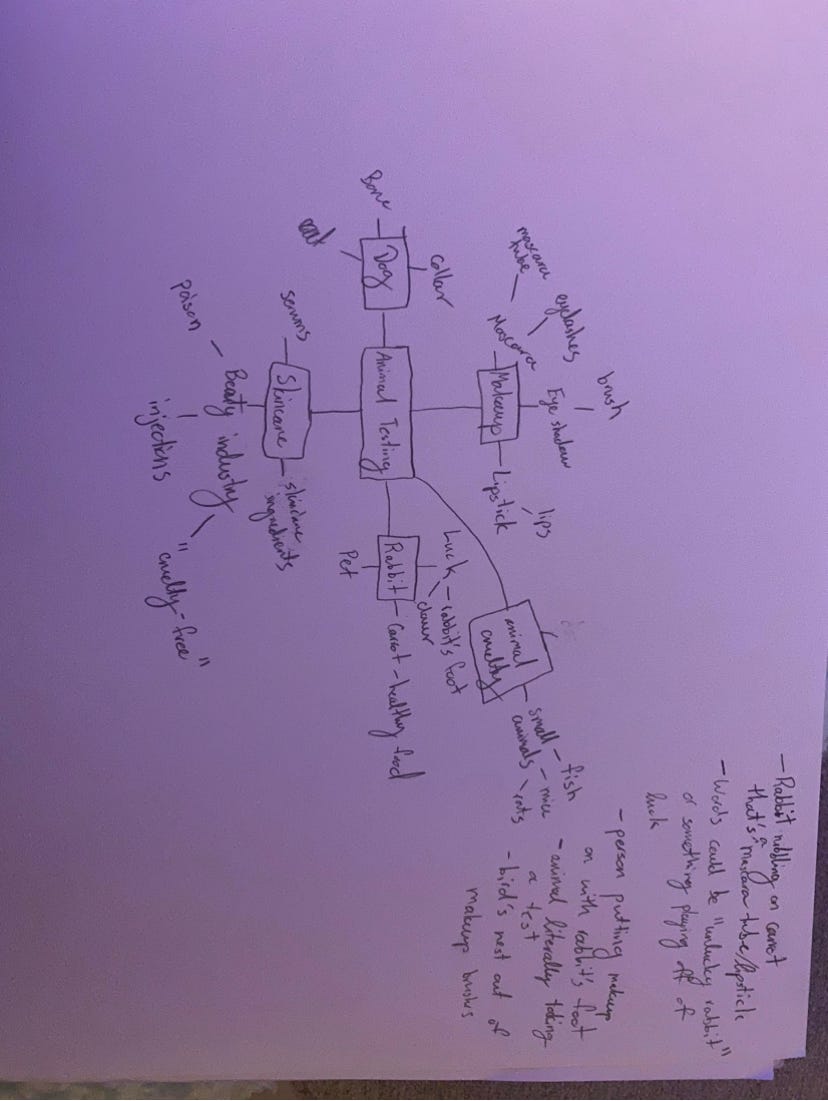 - Rabbit nibbling on carrot
that's a mascara tube/lipstick
- Words could be "unlucky rabbit"
or something playing off of
luck
- person putting makeup
on with rabbit's foot
- animal literally taking
a test
- bird's nest out of
makeup brushes
brush
eyelashes
mascara
tube
Mascara
Eye shadow
lips
Makeup
Lipstick
collar
Bone
Dog
Animal Testing
animal
cruelty
small
animals
- fish
- mice
- rats
Luck - rabbit's foot
clover
Rabbit - Carrot - healthy food
Pet
serums
Skincare
skincare
ingredients
poison
Beauty industry
injections
"cruelty-free"